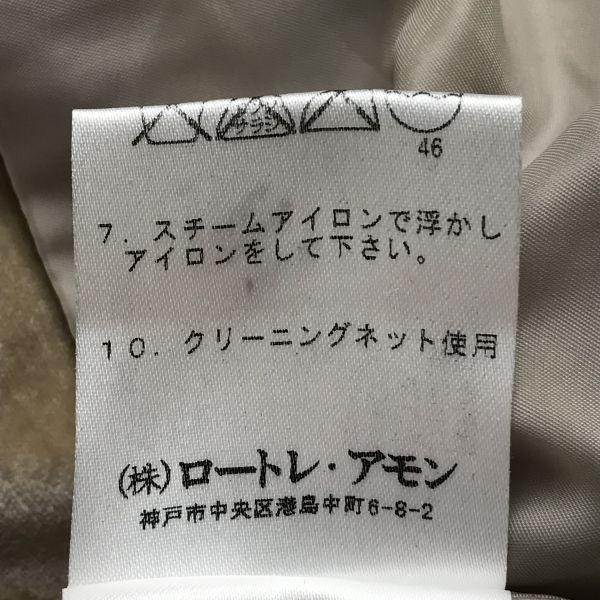 サラシ
46
7. スチームアイロンで浮かし
アイロンをして下さい。
10. クリーニングネット使用
(株)ロートレ・アモン
神戸市中央区港島中町6-8-2